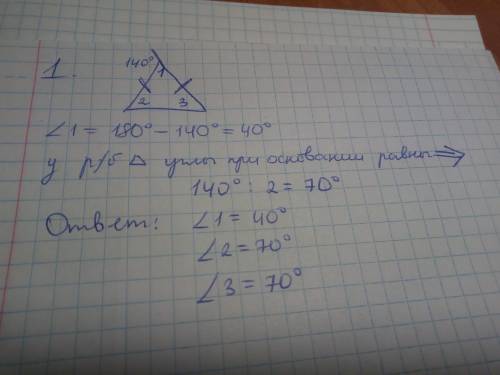 1.
140°
1
2 3
∠1 = 180° − 140° = 40°
у р/б △ углы при основании равны ⟹
140° : 2 = 70°
Ответ: ∠1 = 40°
∠2 = 70°
∠3 = 70°